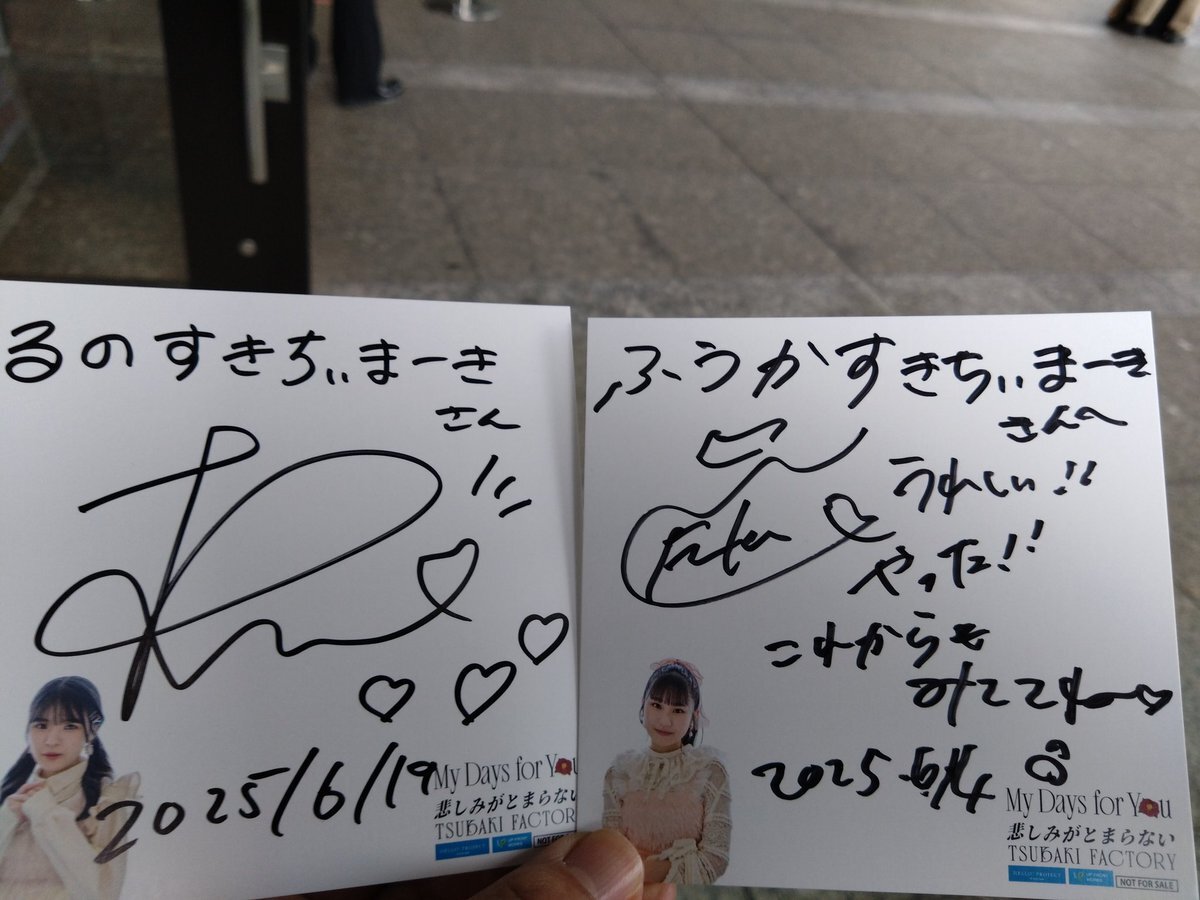 るのすきちぃまーき
さん
2025/6/19
My Days for You
悲しみがとまらない
TSUBAKI FACTORY
HELLO! PROJECT
UP-FRONT WORKS
NOT FOR
ふうかすきちぃまーき
さんへ
うれしい!!
やった!!
これからも
みててねー♡
2025.
My Days for You
悲しみがとまらない
TSUBAKI FACTORY
HELLO! PROJECT
UP-FRONT WORKS
NOT FOR SALE